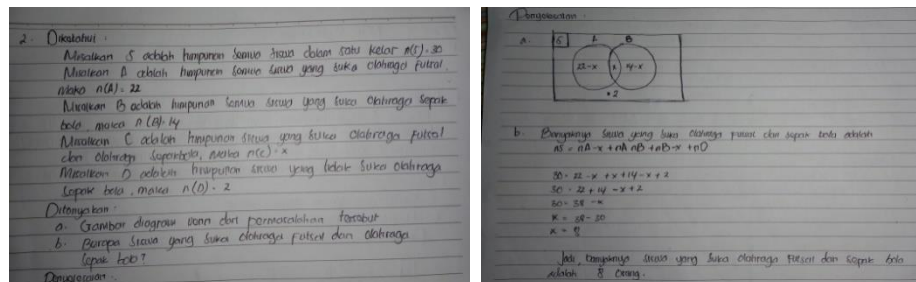 2. Diketahui :
Misalkan S adalah himpunan semua siswa dalam satu kelas n(S) = 30
Misalkan A adalah himpunan semua siswa yang suka olahraga futsal,
Maka n(A) = 22
Misalkan B adalah himpunan semua siswa yang suka olahraga sepak
bola, maka n(B) = 14
Misalkan C adalah himpunan siswa yang suka olahraga futsal
dan olahraga sepakbola, maka n(C) = x
Misalkan D adalah himpunan siswa yang tidak suka olahraga
sepak bola, maka n(D) = 2
Ditanyakan :
a. Gambar diagram venn dari permasalahan tersebut
b. Berapa siswa yang suka olahraga futsal dan olahraga
sepak bola?
Penyelesaian :
Penyelesaian :
a. S A B
22-x x 14-x
• 2
b. Banyaknya siswa yang suka olahraga futsal dan sepak bola adalah
nS = nA-x + nA nB + nB-x + nD
30 = 22 -x + x + 14 -x + 2
30 = 22 + 14 -x + 2
30 = 38 -x
x = 38 - 30
x = 8
Jadi, banyaknya siswa yang suka olahraga futsal dan sepak bola
adalah 8 orang.